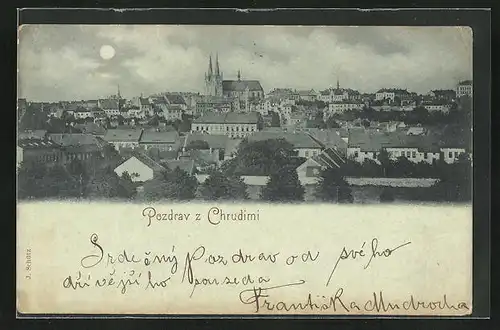 Pozdrav z Chrudimi
J. Schütz
Srdečný Pozdrav od svého
dřívějšího souseda
Františka Mudrocha